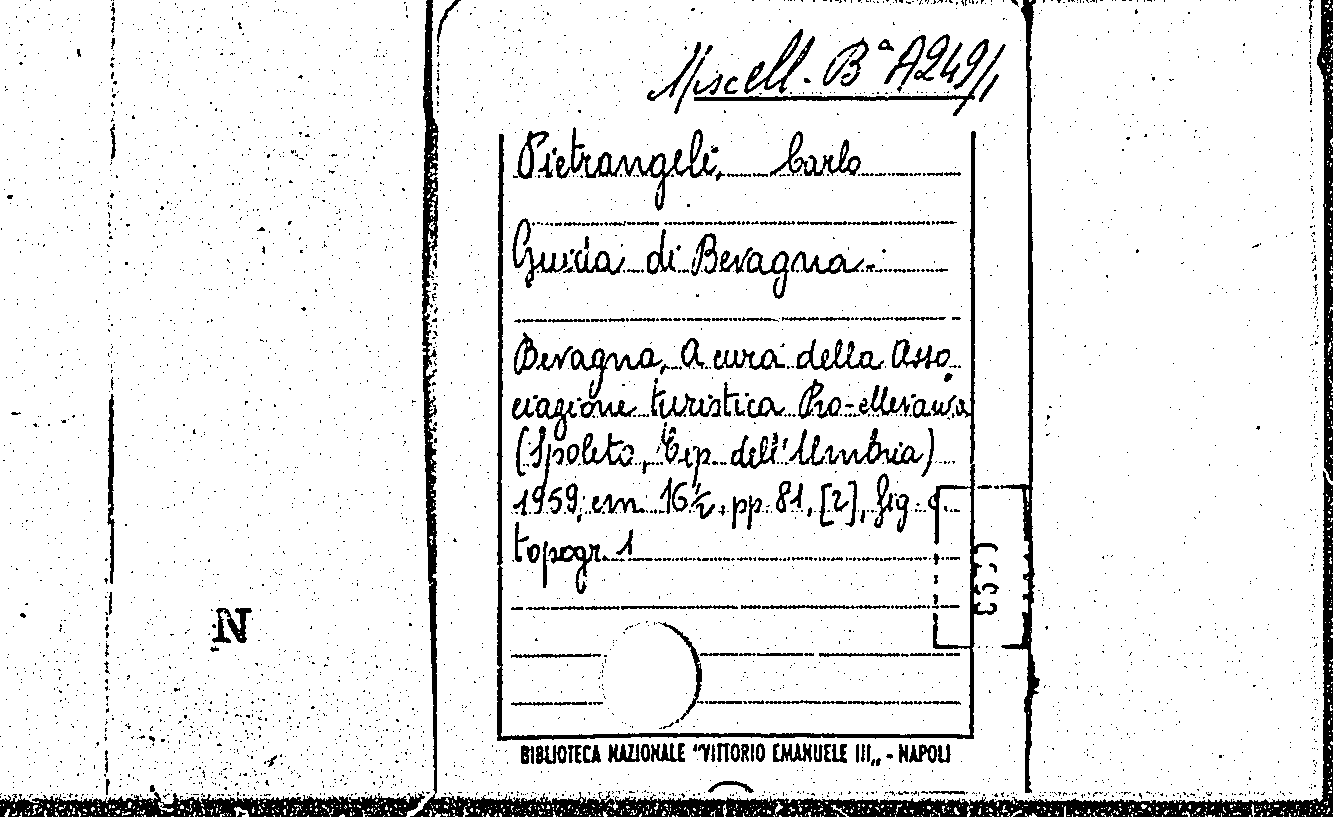 Miscell. Bª A249/1
Pietrangeli, Carlo
Guida di Bevagna.
Bevagna, A cura della Asso
ciazione turistica Pro-Mevania
(Spoleto, Tip. dell'Umbria)
1959, cm. 16½, pp. 81, [2], fig. c.
topogr. 1
N
BIBLIOTECA NAZIONALE "VITTORIO EMANUELE III„ - NAPOLI